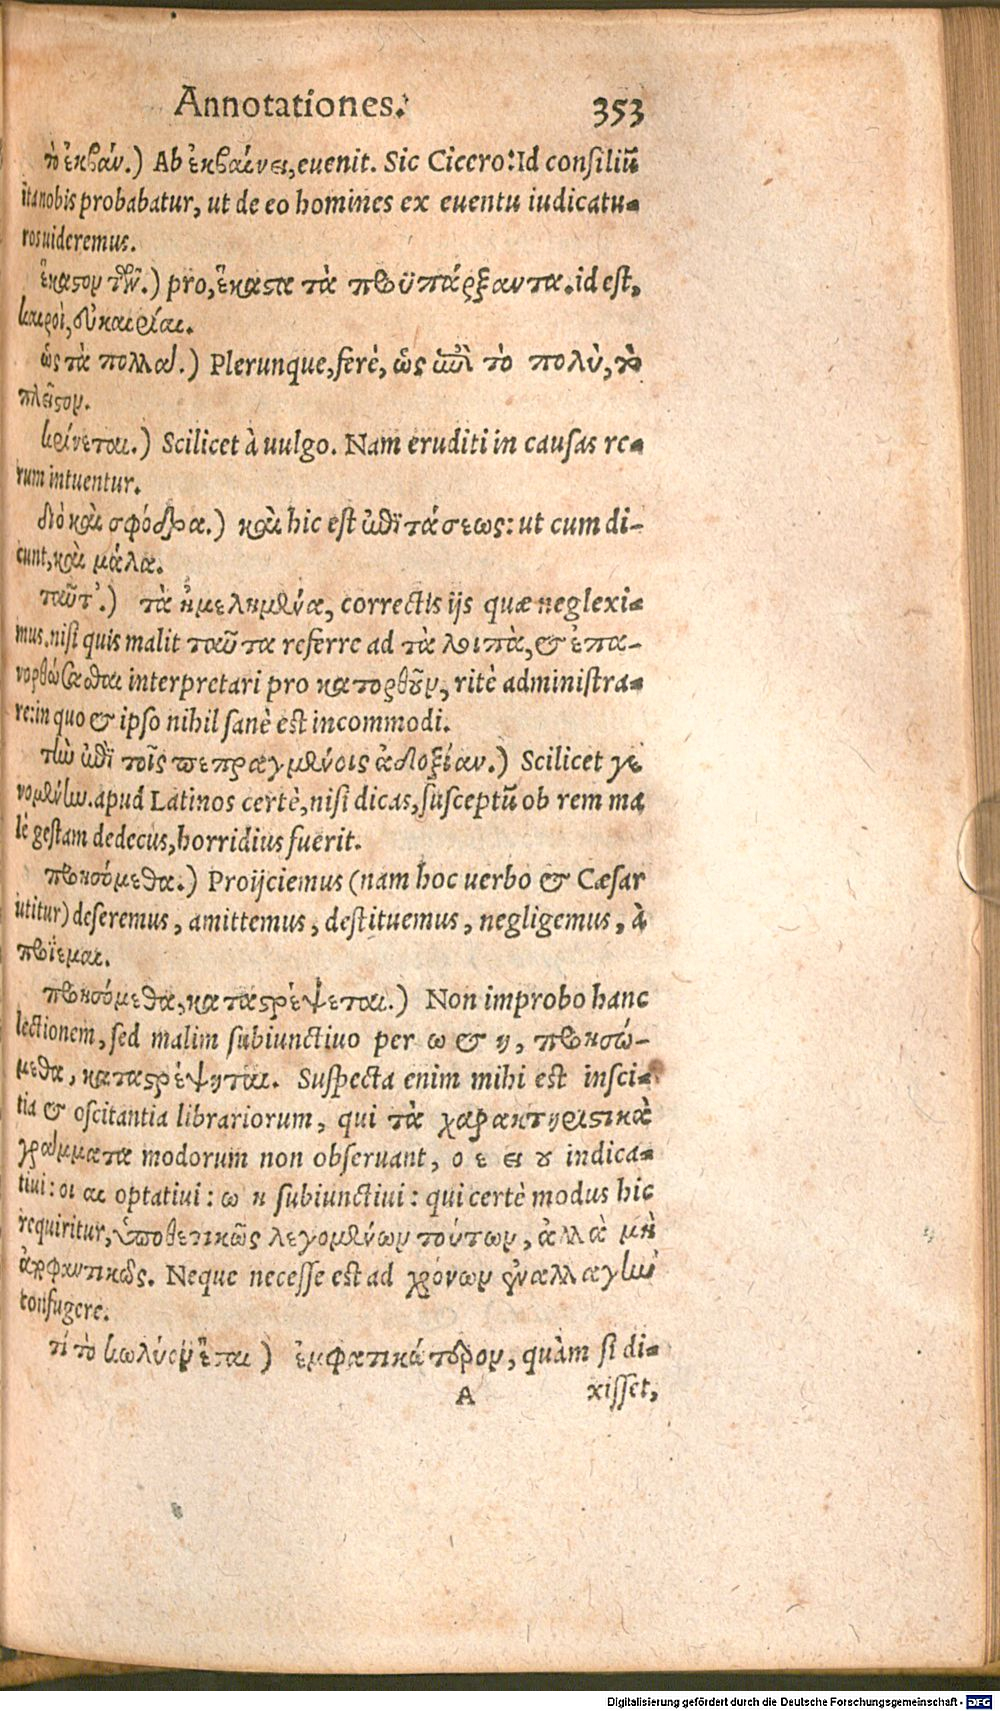 Annotationes. 353
τὸ ἐκβάν.) Ab ἐκβαίνει, euenit. Sic Cicero: Id consiliũ
ita nobis probabatur, ut de eo homines ex euentu iudicatu-
ros uideremus.
ἕκαστον τῶν.) pro, ἕκαστα τὰ προϋπάρξαντα. id est,
καιροὶ, εὐκαιρίαι.
ὡς τὰ πολλά.) Plerunque, ferè, ὡς ἐπὶ τὸ πολὺ, τὸ
πλεῖστον.
κρίνεται.) Scilicet à uulgo. Nam eruditi in causas re-
rum intuentur.
διὸ καὶ σφόδρα.) καὶ hic est ἐπιτάσεως: ut cum di-
cunt, καὶ μάλα.
ταῦτ᾽.) τὰ ἠμελημένα, correctis ijs quæ neglexi-
mus. nisi quis malit ταῦτα referre ad τὰ λοιπὰ, & ἐπα-
νορθώσασθαι interpretari pro κατορθοῦν, ritè administra-
re: in quo & ipso nihil sanè est incommodi.
τὴν ἐπὶ τοῖς πεπραγμένοις ἀδοξίαν.) Scilicet γε
νομένην. apud Latinos certè, nisi dicas, susceptũ ob rem ma
lè gestam dedecus, horridius fuerit.
προησόμεθα.) Proijciemus (nam hoc uerbo & Cæsar
utitur) deseremus, amittemus, destituemus, negligemus, à
προΐεμαι.
προησόμεθα, καταστρέψεται.) Non improbo hanc
lectionem, sed malim subiunctiuo per ω & η, προησώ-
μεθα, καταστρέψηται. Suspecta enim mihi est insci-
tia & oscitantia librariorum, qui τὰ χαρακτηριστικὰ
γράμματα modorum non obseruant, ο ε ει ου indica-
tiui: οι αι optatiui: ω η subiunctiui: qui certè modus hic
requiritur, ὑποθετικῶς λεγομένων τούτων, ἀλλὰ μὴ
ἀποφαντικῶς. Neque necesse est ad χρόνων ἐναλλαγὴν
confugere.
τί τὸ κωλῦον ἔται) ἐμφατικώτερον, quàm si di-
A xisset,
Digitalisierung gefördert durch die Deutsche Forschungsgemeinschaft - DFG